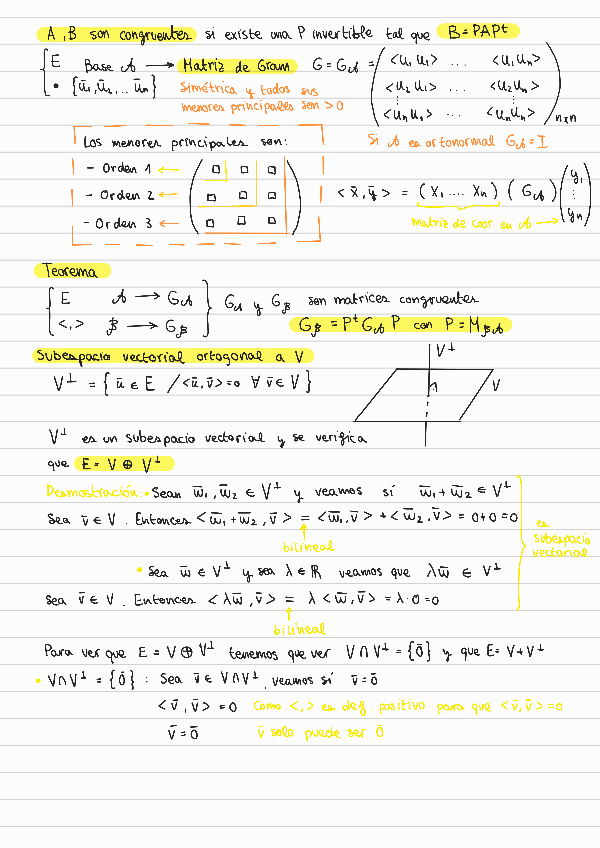 A, B son congruentes si existe una P invertible tal que B = PAPᵗ
E Base A → Matriz de Gram G = G_A = ( <u₁ u₁> ... <u₁ uₙ>
• {ū₁, ū₂, ... ūₙ} Simétrica y todos sus <u₂ u₁> ... <u₂ uₙ>
menores principales son > 0 <uₙ uₙ> ... <uₙ uₙ> ) nxn
Los menores principales son: Si A es ortonormal G_A = I
- Orden 1 ←
- Orden 2 ← < x̄, ȳ > = (x₁ .... xₙ) (G_A) (y₁ ⋮ yₙ)
- Orden 3 ← matriz de coor en A →
Teorema
E A → G_A G_A y G_B son matrices congruentes
<,> B → G_B G_B = Pᵗ G_A P con P = M_BA
Subespacio vectorial ortogonal a V
V⊥ = { ū ∈ E / <ū, v̄> = 0 ∀ v̄ ∈ V } V⊥ V
V⊥ es un subespacio vectorial y se verifica
que E = V ⊕ V⊥
Desmostración: • Sean w̄₁, w̄₂ ∈ V⊥ y veamos si w̄₁ + w̄₂ ∈ V⊥
Sea v̄ ∈ V. Entonces < w̄₁ + w̄₂, v̄ > = < w̄₁, v̄ > + < w̄₂, v̄ > = 0 + 0 = 0 es subespacio vectorial
bilineal
• Sea w̄ ∈ V⊥ y sea λ ∈ ℝ veamos que λw̄ ∈ V⊥
Sea v̄ ∈ V. Entonces < λw̄, v̄ > = λ < w̄, v̄ > = λ · 0 = 0
bilineal
Para ver que E = V ⊕ V⊥ tenemos que ver V ∩ V⊥ = {ō} y que E = V + V⊥
• V ∩ V⊥ = {ō} : Sea v̄ ∈ V ∩ V⊥, veamos si v̄ = ō
< v̄, v̄ > = 0 Como <,> es def. positivo para que < v̄, v̄ > = 0
v̄ = ō v̄ solo puede ser ō